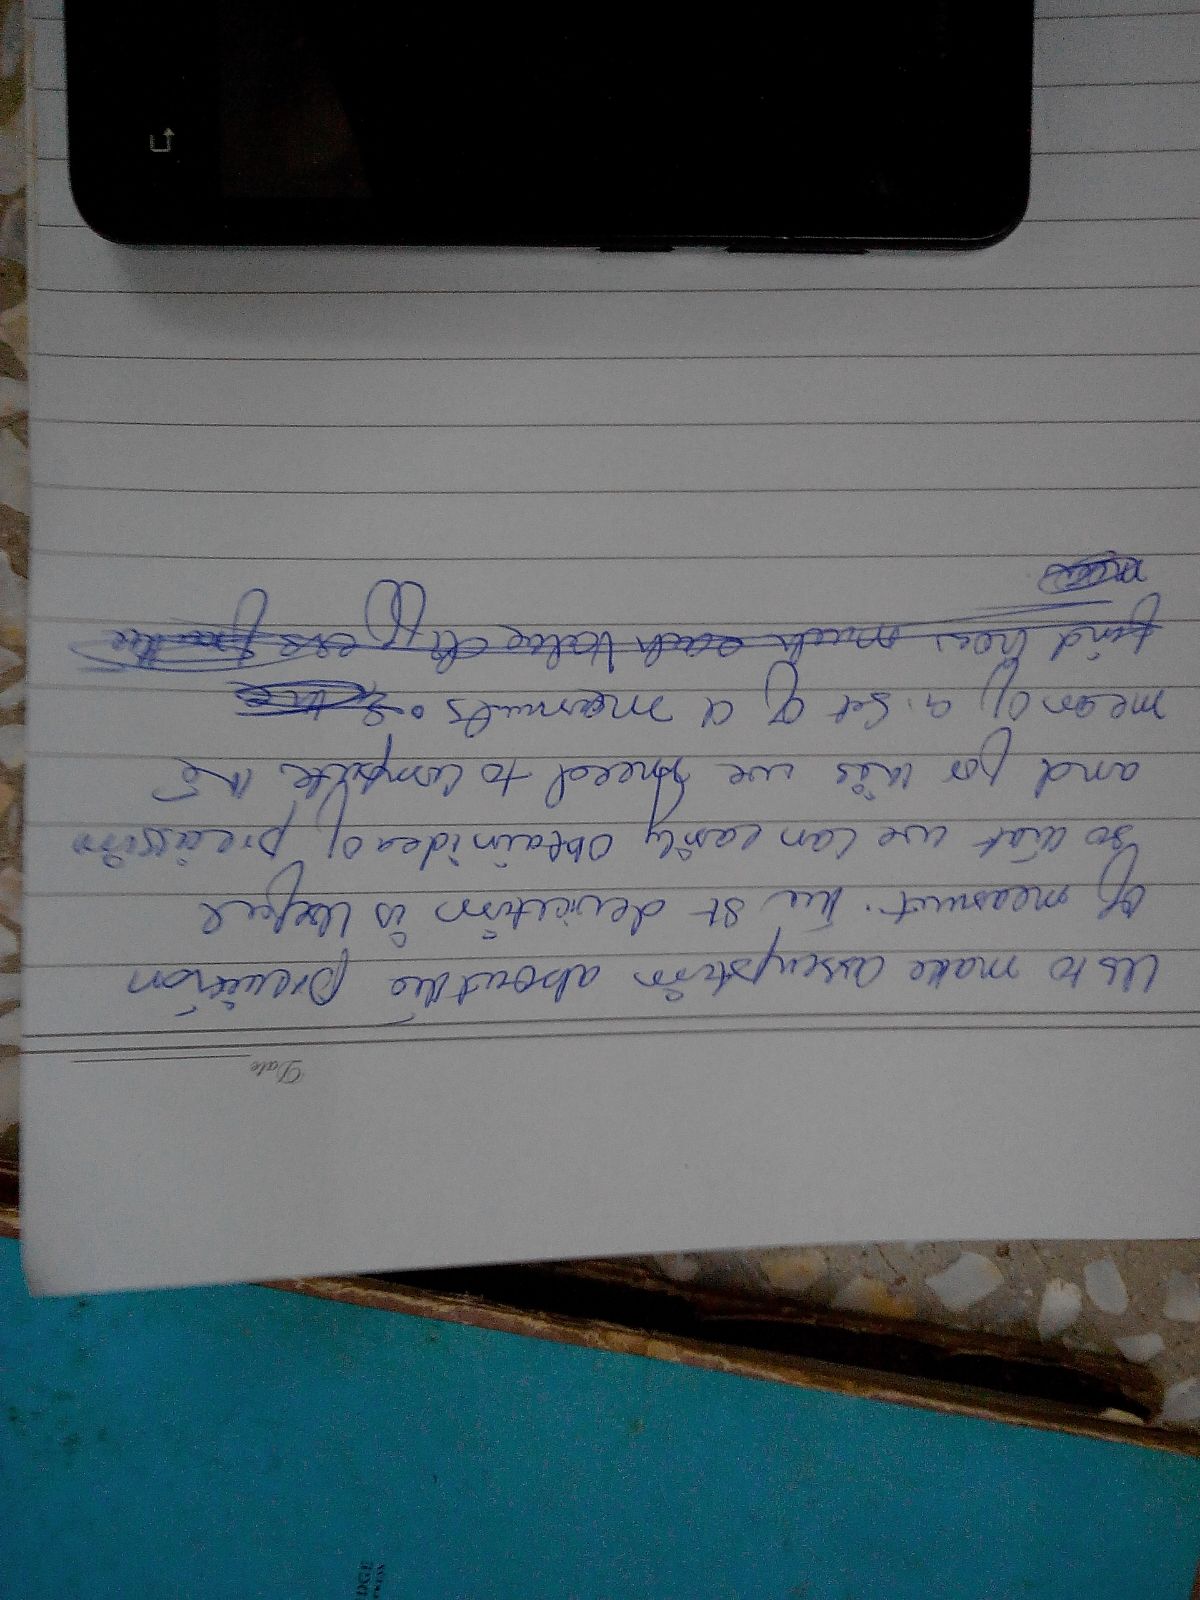 Date
us to make assumption about the precission
of measmut. The st deviction is usefull
so that we can easily obtain idea of precission
and for this we need to compute the
mean of a set of a measmuts.
find how much each value differs from the
DGE
PRESS